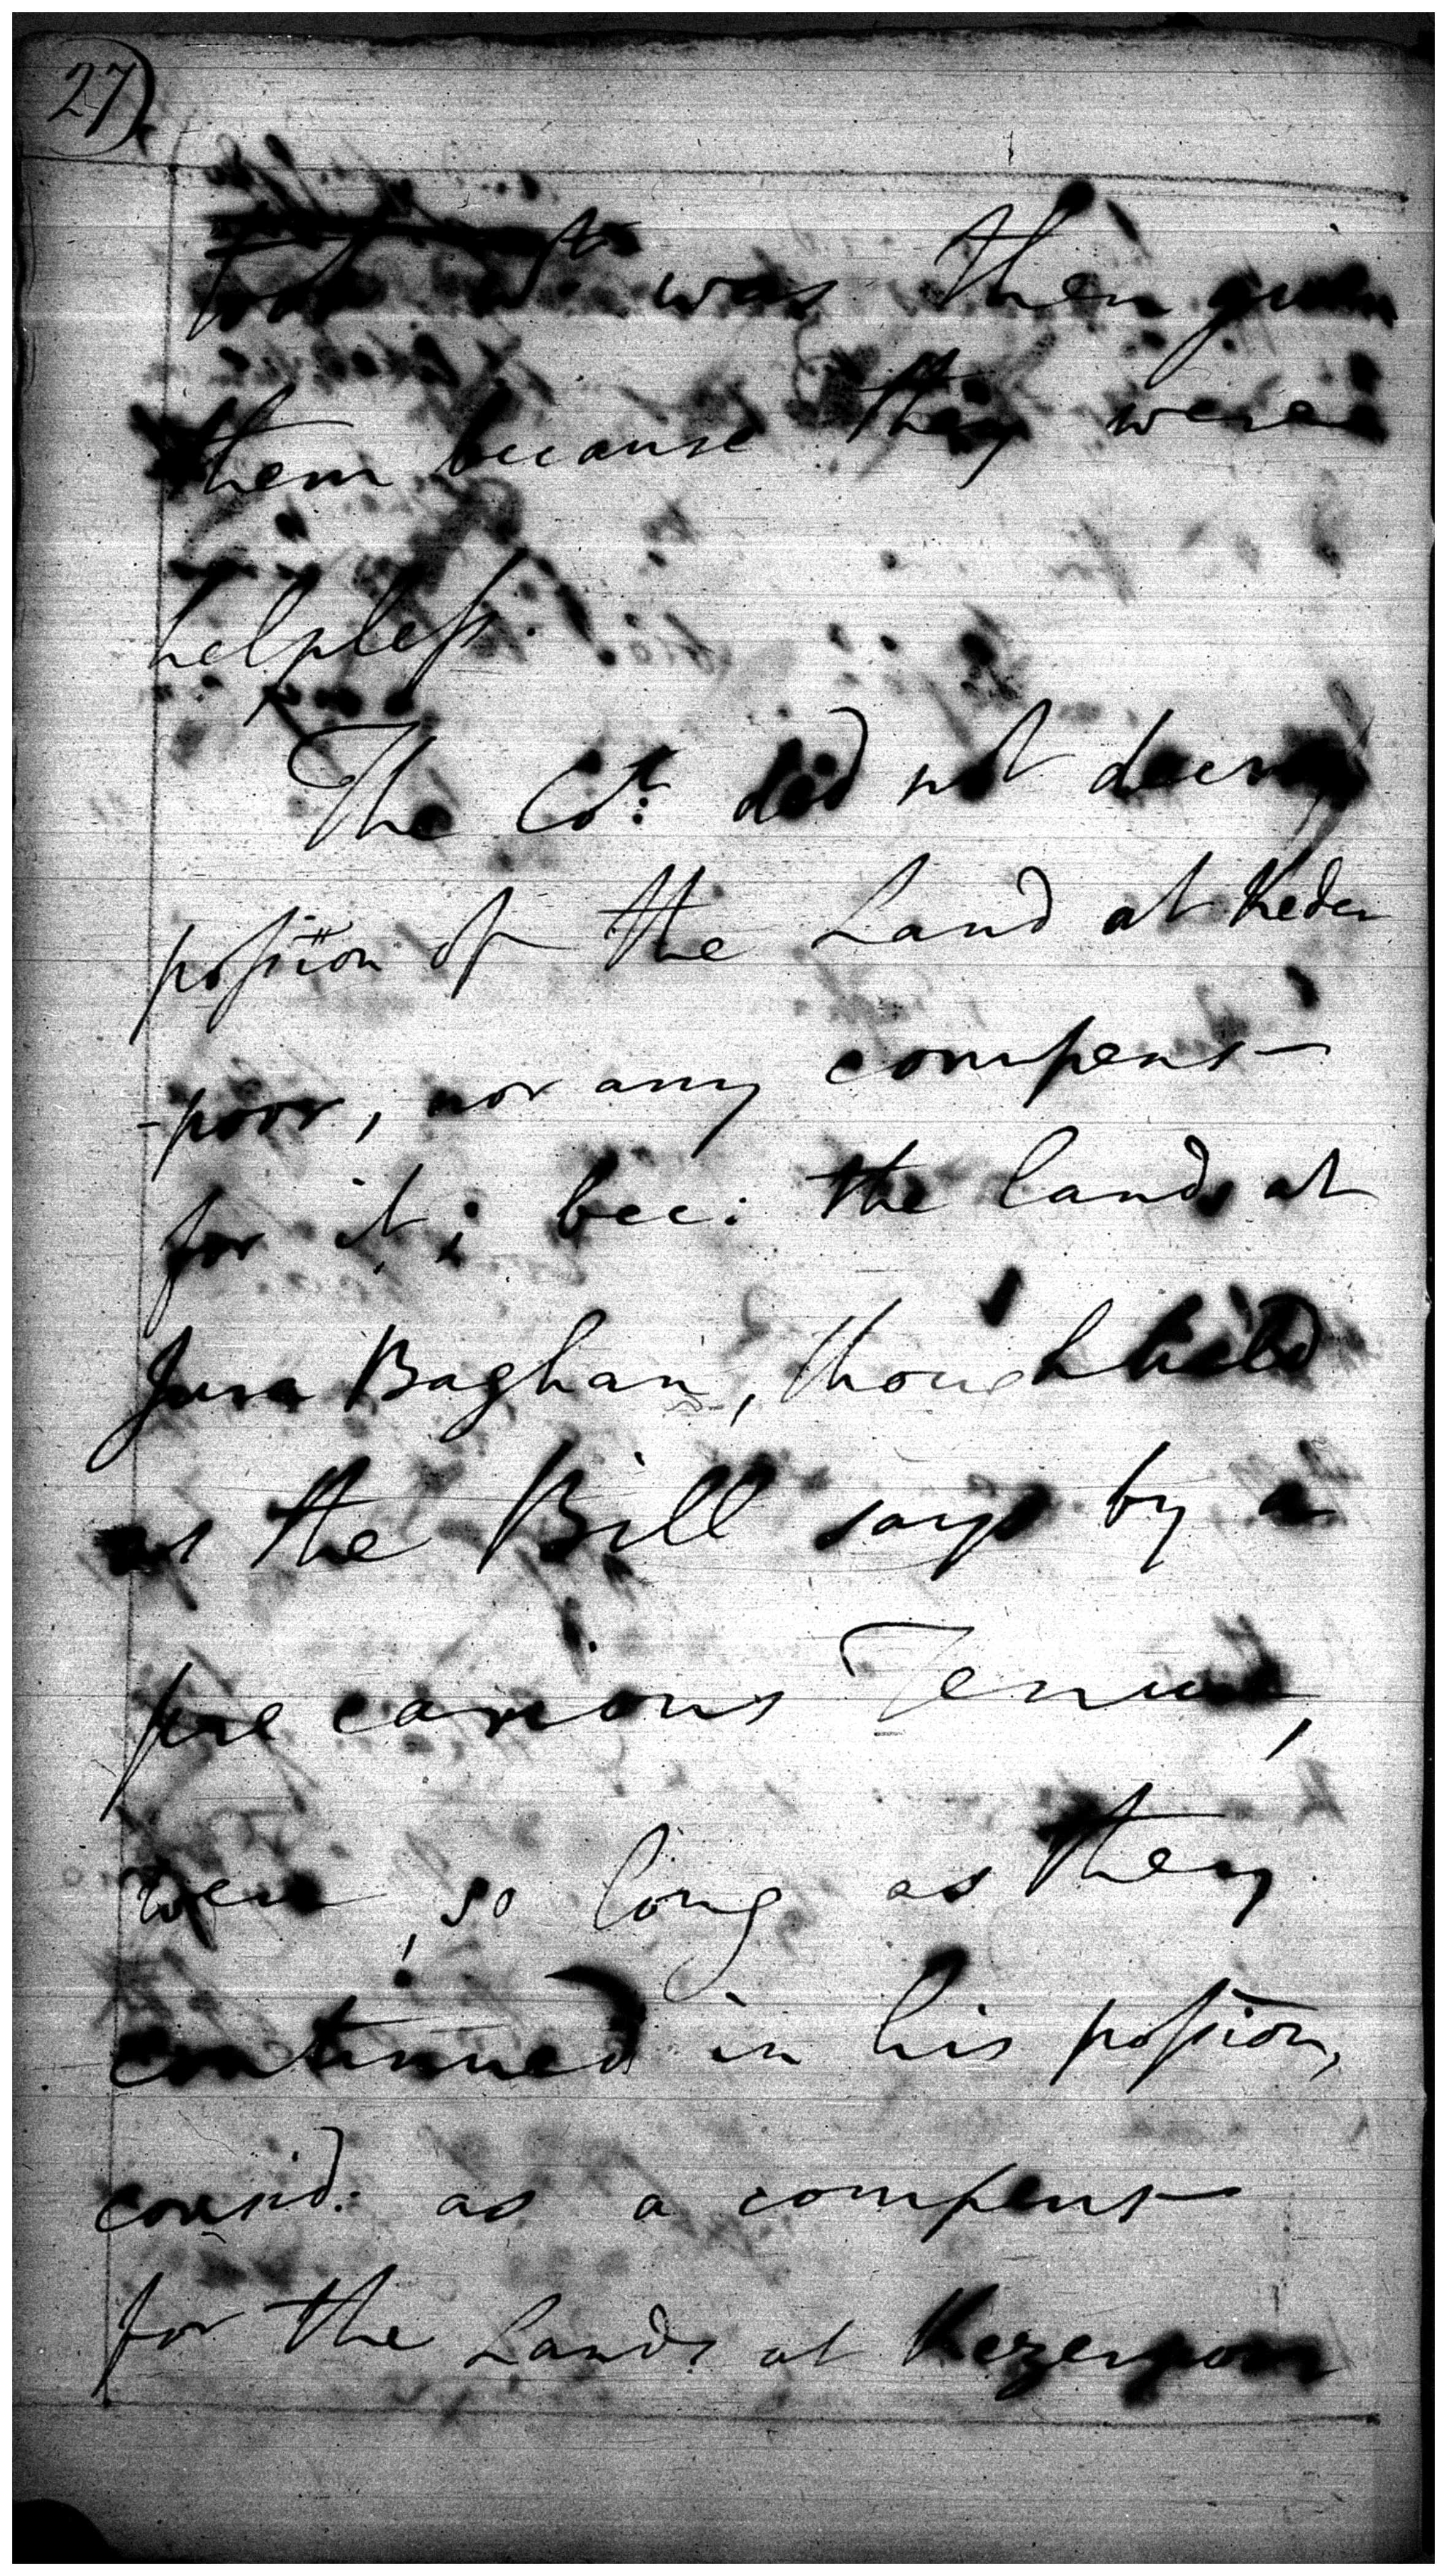 27).
was then given
them because they were
helpless.
The Cot: did not decree
possion of the Land at Keder
-poor, nor any compens-
for it; bec: the lands at
Jura Baghan, though held
as the Bill says by a
precarious Tenure,
were, so long as they
continued in his possion,
consid: as a compens-
for the Lands at Kezerpoor